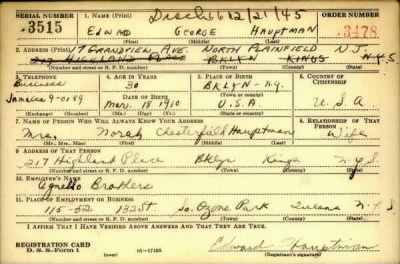 SERIAL NUMBER 1. NAME (Print) Disch 6 12/21/45 ORDER NUMBER
3515 EDWARD GEORGE HAUPTMAN 3478
(First) (Middle) (Last)
2. ADDRESS (Print) 7 GRANDVIEW AVE. NORTH PLAINFIELD N.J.
217 HIGHLAND PLACE BKLYN KINGS N.Y.S.
(Number and street or R. F. D. number) (Town) (County) (State)
3. TELEPHONE 4. AGE IN YEARS 5. PLACE OF BIRTH 6. COUNTRY OF CITIZENSHIP
Business 30 BKLYN - N.Y.
DATE OF BIRTH (Town or county)
Jamaica 9-0189 Mar. 18 1910 U.S.A. U.S.A.
(Exchange) (No.) (Mo.) (Day) (Yr.) (State or country)
7. NAME OF PERSON WHO WILL ALWAYS KNOW YOUR ADDRESS 8. RELATIONSHIP OF THAT PERSON
Mrs. Norah Chesterfield Hauptman Wife
(Mr., Mrs., Miss) (First) (Middle) (Last)
9. ADDRESS OF THAT PERSON
217 Highland Place Bklyn Kings N.Y.S
(Number and street or R. F. D. number) (Town) (County) (State)
10. EMPLOYER'S NAME
Brothers
11. PLACE OF EMPLOYMENT OR BUSINESS
115-52 132 St So. Ozone Park Queens N.Y.S
(Number and street or R. F. D. number) (Town) (County) (State)
I AFFIRM THAT I HAVE VERIFIED ABOVE ANSWERS AND THAT THEY ARE TRUE.
REGISTRATION CARD
D. S. S. Form 1 (over) 16—17105 Edward Hauptman
(Registrant's signature)